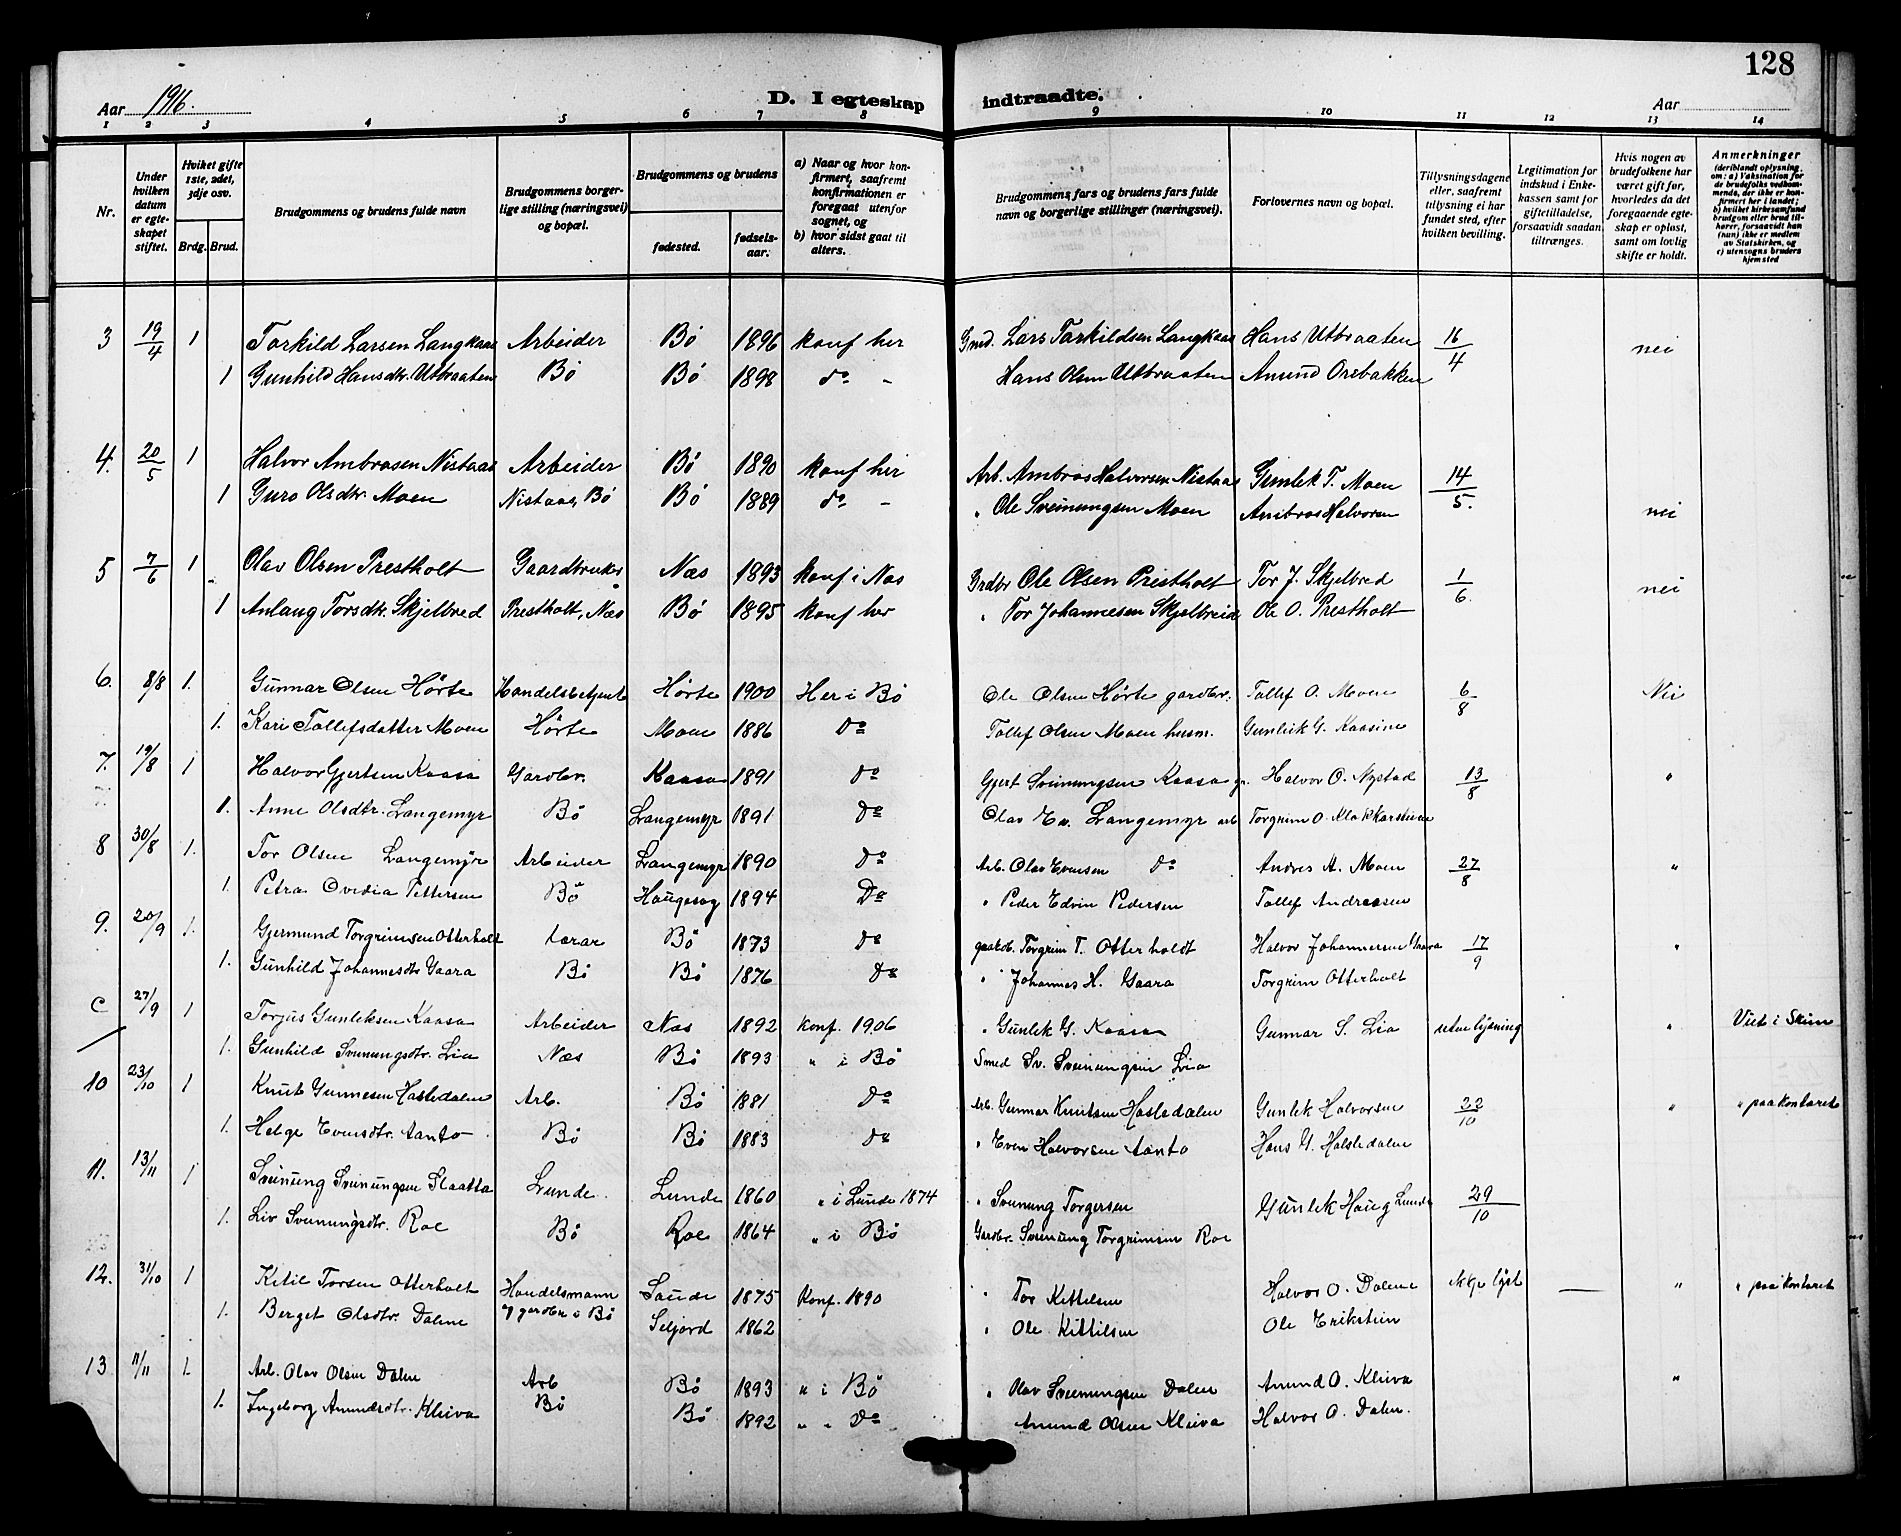 128
Aar 1916.
D. I egteskap indtraadte.
Aar
1 2 3 4 5 6 7 8 9 10 11 12 13 14
Nr.
Under hvilken datum er egteskapet stiftet.
Hvilket gifte 1ste, 2det, 3dje osv.
Brdg. Brud.
Brudgommens og brudens fulde navn
Brudgommens borgerlige stilling (næringsvei) og bopæl.
Brudgommens og brudens
fødested.
fødselsaar.
a) Naar og hvor konfirmert, saafremt konfirmationen er foregaat utenfor sognet, og
b) hvor sidst gaat til alters.
Brudgommens fars og brudens fars fulde navn og borgerlige stillinger (næringsvei).
Forlovernes navn og bopæl.
Tillysningsdagene eller, saafremt tillysning ei har fundet sted, efter hvilken bevilling.
Legitimation for indskud i Enkekassen samt for giftetilladelse, forsaavidt saadan tiltrænges.
Hvis nogen av brudefolkene har været gift før, hvorledes da det foregaaende egteskap er opløst, samt om lovlig skifte er holdt.
Anmerkninger
(deriblandt oplysning om: a) Vaksination for de brudefolks vedkommende, der ikke er konfirmert her i landet;
b) hvilket kirkesamfund brudgom eller brud tilhører, forsaavidt han (hun) ikke er medlem av Statskirken, og
c) utensogns bruders hjemsted
3 19/4 1 Torkild Larsen Langkaas Arbeider Bø 1896 konf her Gmd. Lars Torkildsen Langkaas Hans Utbraaten 16/4 nei
1 Gunhild Hansdtr. Utbraaten Bø Bø 1898 do - Hans Olsen Utbraaten Amund Orebakken
4. 20/5 1 Halvor Ambrosen Nistaas Arbeider Bø 1890 konf her Arb. Ambros Halvorsen Nistaas Gunlek T. Moen 14/5. nei
1 Guro Olsdtr. Moen Nistaas, Bø Bø 1889 do - " Ole Sveinungsen Moen Ambros Halvorsen
5 7/6 1 Olav Olsen Prestholt Gaardbruker Næs 1893 konf i Næs Grdbr Ole Olsen Prestholt Tor J. Skjelbred 1/6. nei
1 Anlaug Torsdtr. Skjelbred Prestholt, Næs Bø 1895 konf her " Tor Johannesen Skjelbreid Ole O. Prestholt
6. 8/8 1. Gunnar Olsen Hørte Handelsbetjent Hørte 1900 Her i Bø Ole Olsen Hørte gardbr. Tollef O. Moen 6/8 Nei
1. Kari Tollefsdatter Moen Hørte Moen 1886 Do Tollef Olsen Moen husm. Gunleik G. Kaasine
7. 19/8 1 Halvor Gjertsen Kaasa Gardbr. Kaasa 1891 Do Gjert Sveinungsen Kaasa g. Halvor O. Nystad 13/8 "
1. Anne Olsdtr. Langemyr Bø Langemyr 1891 Do Olav Ev. Langemyr arb Torgrim O.
8 30/8 1. Tor Olsen Langemyr Arbeider Langemyr 1890 Do Arb. Olav Evensen Do Andres A. Moen 27/8 "
1. Petra Ovedia Pettersen Bø Haugesog 1894 Do " Peder Edvin Pedersen Tollef Andreasen
9. 20/9 1. Gjermund Torgrimsen Otterholt Lærar Bø 1873 Do Torgrim T. Otterholdt Halvor Johannesen Gaara 17/9 "
1. Gunhild Johannesdtr Gaara Bø Bø 1876 Do " Johannes H. Gaara Torgrim Otterholt
C 27/9 1 Torjus Gunleksen Kaasa Arbeider Næs 1892 konf. 1906 " Gunlek G. Kaasa Gunnar S. Lia utan lysning " Viet i Skien
1. Gunhild Svenungsdtr. Lia Næs Bø 1893 " i Bø Smed Sv. Sveinungsen Lia
10 23/10 1 Knut Gunnesen Hasledalen Arb. Bø 1881 Do Arb. Gunnar Knutsen Hasledalen Gunlek Halvorsen 22/10 " " paa kontoret
1. Helge Evensdtr. Aanto Bø Bø 1883 Do " Even Halvorsen Aanto Hans G. Halsledalen
11. 13/11 1 Sveinung Sveinungsen Slaatta Lunde Lunde 1860 " i Lunde 1874 " Svenung Torgersen Gunlek Haug Lunde 29/10
1. Liv Svenungsdtr. Roe Bø Roe 1864 " i Bø Gardbr. Sveinung Torgrimsen Roe
12. 31/10 1 Ketil Torsen Otterholt Handelsmann Saude 1875 Konf. 1890 " Tor Kittelsen Halvor O. Dalene ikkje lyst — " " paa kontoret
1. Berget Olsdtr. Dalene og gardbr i Bø Seljord 1862 " Ole Kittilsen Ole Erikstein
13 11/11 1. Arb. Olav Olsen Dalen Arb Bø 1893 " i Bø " Olav Sveinungsen Dalen Amund O. Kleiva "
1. Ingeborg Amundsdtr. Kleiva Bø Bø 1892 " " Do Amund Olsen Kleiva Halvor O. Dalen.